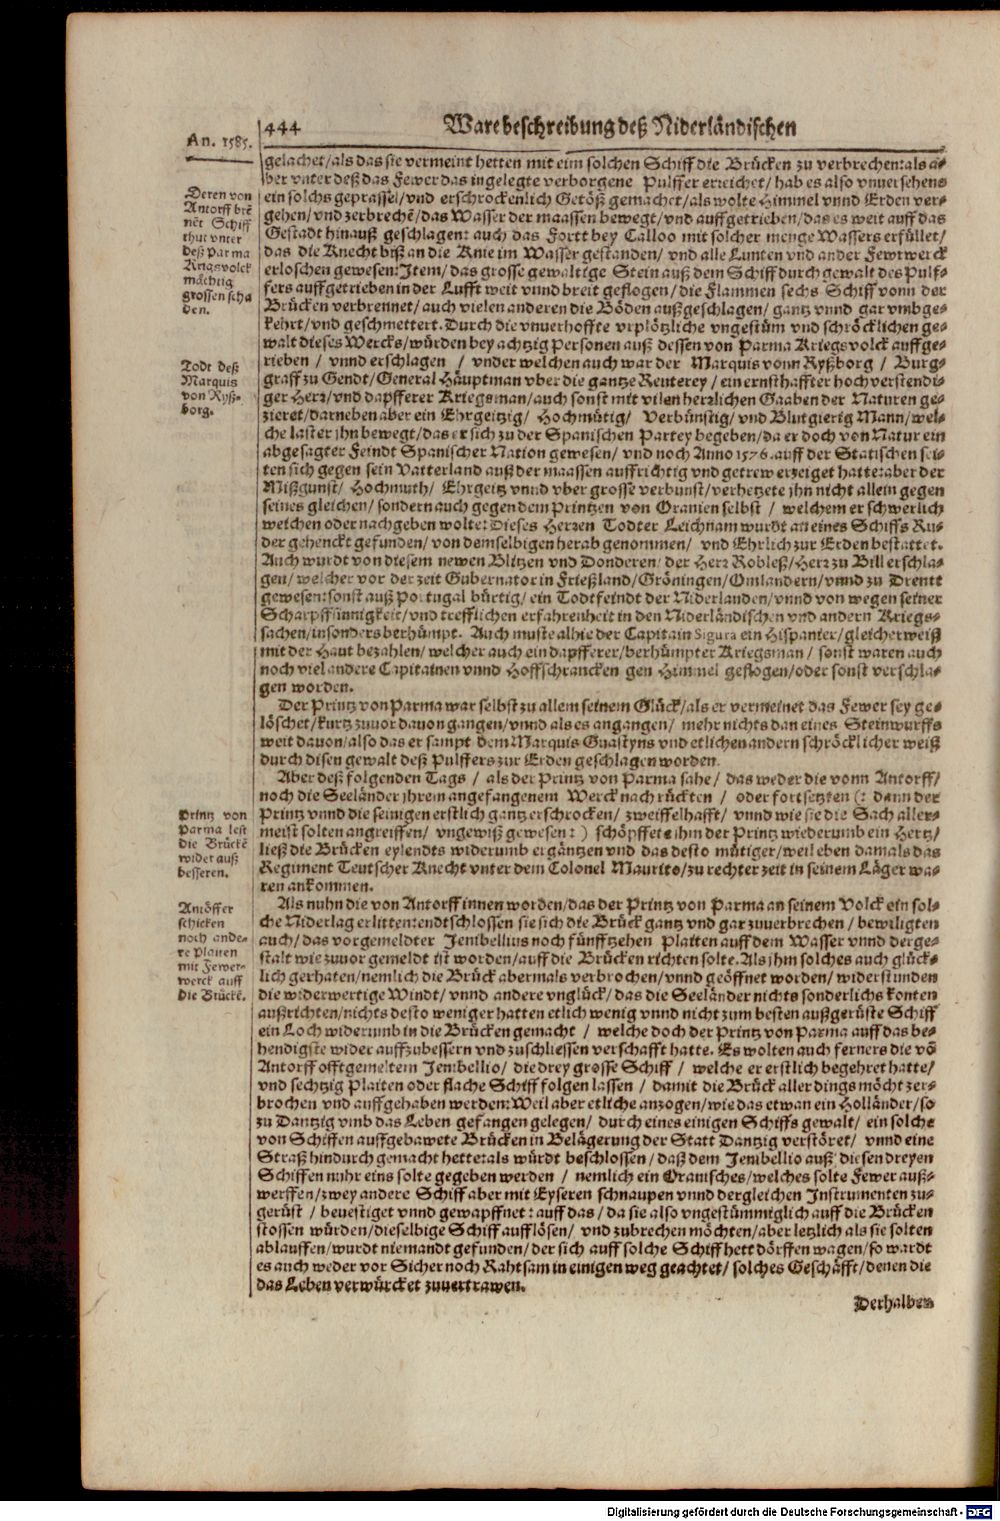 444
Warebeschreibung deß Niderländischen
An. 1585.
gelachet/als das sie vermeint hetten mit eim solchen Schiff die Brücken zu verbrechen:als a-
ber vnter deß das Fewer das ingelegte verborgene Pulffer erreichet/hab es also vnuersehens
ein solchs geprassel/vnd erschrockenlich Getöß gemachet/als wolte Himmel vnnd Erden ver-
gehen/vnd zerbrechē/das Wasser der maassen bewegt/vnd auffgetrieben/das es weit auff das
Gestadt hinauß geschlagen: auch das Fortt bey Calloo mit solcher menge Wassers erfüllet/
das die Knecht biß an die Knie im Wasser gestanden/vnd alle Lunten vnd ander Fewrwerck
erloschen gewesen:Item/das grosse gewaltige Stein auß dem Schiff durch gewalt des Pulf-
fers auffgetrieben in der Lufft weit vnnd breit geflogen/die Flammen sechs Schiff vonn der
Brücken verbrennet/auch vielen anderen die Böden außgeschlagen/gantz vnnd gar vmbge-
kehrt/vnd geschmettert. Durch die vnuerhoffte vrplötzliche vngestüm vnd schröcklichen ge-
walt dieses Wercks/würden bey achtzig Personen auß dessen von Parma Kriegsvolck auffge-
rieben / vnnd erschlagen / vnder welchen auch war der Marquis vonn Ryßborg / Burg-
graff zu Gendt/General Häuptman vber die gantze Reuterey/ein ernsthaffter hochverstendi-
ger Herr/vnd dapfferer Kriegsman/auch sonst mit vilen herrlichen Gaaben der Naturen ge-
zieret/darneben aber ein Ehrgeitzig/ Hochmütig/ Verbünstig/vnd Blutgierig Mann/wel-
che laster jhn bewegt/das er sich zu der Spanischen Partey begeben/da er doch von Natur ein
abgesagter Feindt Spanischer Nation gewesen/vnd noch Anno 1576.auff der Statischen sei-
ten sich gegen sein Vatterland auß der maassen auffrichtig vnd getrew erzeiget hatte:aber der
Mißgunst/ Hochmuth/ Ehrgeitz vnnd vber grosse verbunst/verhetzete jhn nicht allein gegen
seines gleichen/sondern auch gegen dem Printzen von Oranien selbst / welchem er schwerlich
weichen oder nachgeben wolte: Dieses Herzen Todter Leichnam wurdt an eines Schiffs Ru-
der gehenckt gefunden/von demselbigen herab genommen/ vnd Ehrlich zur Erden bestattet.
Auch wurdt von diesem newen Blitzen vnd Donderen/der Herr Robleß/Herr zu Bill erschla-
gen/welcher vor der zeit Gubernator in Frießland/Gröningen/Omlandern/vnnd zu Drentt
gewesen:sonst auß Portugal bürtig/ein Todtfeindt der Niderlanden/vnnd von wegen seiner
Scharpffsinnigkeit/vnd trefflichen erfahrenheit in den Niderländischen vnd andern Kriegs-
sachen/insonders berhümpt. Auch muste alhie der Capitain Sigura ein Hispanier/gleicherweiß
mit der Haut bezahlen/welcher auch ein dapfferer/berhümpter Kriegsman/ sonst waren auch
noch viel andere Capitainen vnnd Hoffschrancken gen Himmel geflogen/oder sonst verschla-
gen worden.
Der Printz von Parma war selbst zu allem seinem Glück/als er vermeinet das Fewer sey ge-
löschet/kurtz zuuor dauon gangen/vnnd als es angangen/ mehr nichts dan eines Steinwurffs
weit dauon/also das er sampt dem Marquis Guastyns vnd etlichen andern schröcklicher weiß
durch disen gewalt deß Pulffers zur Erden geschlagen worden.
Aber deß folgenden Tags / als der Printz von Parma sahe/ das weder die vonn Antorff/
noch die Seeländer jhrem angefangenem Werck nach rückten / oder fortsetzten (: dann der
Printz vnnd die seinigen erstlich gantz erschrocken/ zweiffelhafft/ vnnd wie sie die Sach aller-
meist solten angreiffen/ vngewiß gewesen:) schöpffet ihm der Printz wiederumb ein Hertz/
ließ die Brücken eylendts widerumb ergäntzen vnd das desto mütiger/weil eben damals das
Regiment Teutscher Knecht vnter dem Colonel Maurito/zu rechter zeit in seinem Läger wa-
ren ankommen.
Als nuhn die von Antorff innen worden/das der Printz von Parma an seinem Volck ein sol-
che Niderlag erlitten:endtschlossen sie sich die Brück gantz vnd gar zuuerbrechen/bewiligten
auch/das vorgemeldter Jembellius noch fünfftzehen Platten auff dem Wasser vnnd derge-
stalt wie zuuor gemeldt ist worden/auff die Brücken richten solte. Als jhm solches auch glück-
lich gerhaten/nemlich die Brück abermals verbrochen/vnnd geöffnet worden/widerstunden
die widerwertige Windt/vnnd andere vnglück/das die Seeländer nichts sonderlichs konten
außrichten/nichts desto weniger hatten etlich wenig vnnd nicht zum besten außgerüste Schiff
ein Loch widerumb in die Brücken gemacht / welche doch der Printz von Parma auff das be-
hendigste wider auffzubessern vnd zuschliessen verschafft hatte. Es wolten auch ferners die vō
Antorff offtgemeltem Jembellio/die drey grosse Schiff / welche er erstlich begehret hatte/
vnd sechtzig Platten oder flache Schiff folgen lassen / damit die Brück aller dings möcht zer-
brochen vnd auffgehaben werden:Weil aber etliche anzogen/wie das etwan ein Holländer/so
zu Dantzig vmb das Leben gefangen gelegen/ durch eines einigen Schiffs gewalt/ ein solche
von Schiffen auffgebawete Brücken in Belägerung der Statt Dantzig verstöret/ vnnd eine
Straß hindurch gemacht hette:als würdt beschlossen/daß dem Jembellio auß diesen dreyen
Schiffen nuhr eins solte gegeben werden / nemlich ein Oranisches/welches solte Fewer auß-
werffen/zwey andere Schiff aber mit Eyseren schnaupen vnnd dergleichen Instrumenten zu-
gerüst / beuestiget vnnd gewapffnet:auff das/da sie also vngestümmiglich auff die Brücken
stossen würden/dieselbige Schiff aufflösen/ vnd zubrechen möchten/aber letzlich als sie solten
ablauffen/wurdt niemandt gefunden/der sich auff solche Schiff hett dörffen wagen/so wardt
es auch weder vor Sicher noch Rahtsam in einigen weg geachtet/solches Geschäfft/denen die
das Leben verwürcket zuuertrawen.
Derhalben
Deren von
Antorff brē
nēt Schiff
thut vnter
deß Parma
Krigsvolck
mächtig
grossen scha
den.
Todt deß
Marquis
von Ryß-
borg.
Printz von
Parma lest
die Brückē
wider auß
besseren.
Antöffer
schicken
noch ande-
re Platten
mit Fewer-
werck auff
die Brückē.
Digitalisierung gefördert durch die Deutsche Forschungsgemeinschaft - DFG